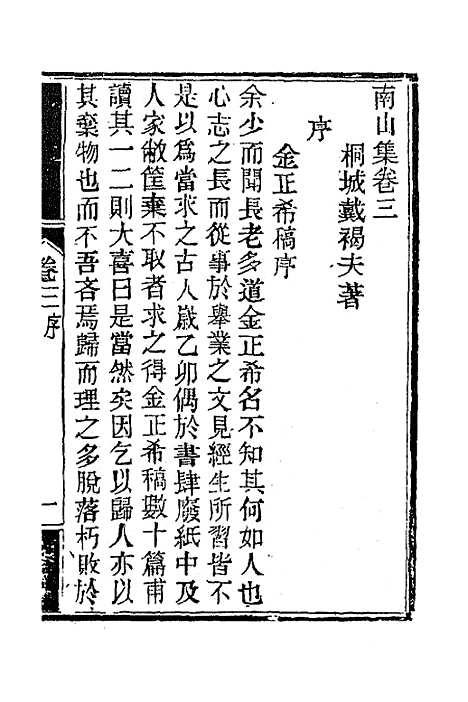 南山集卷三
桐城戴褐夫著
序
金正希稿序
余少而聞長老多道金正希名不知其何如人也
心志之長而從事於舉業之文見經生所習皆不
是以爲當求之古人嵗乙卯偶於書肆廢紙中及
人家敝筐棄不取者求之得金正希稿數十篇甫
讀其一二則大喜曰是當然矣因乞以歸人亦以
其棄物也而不吾吝焉歸而理之多脫落朽敗於
卷三 序
一